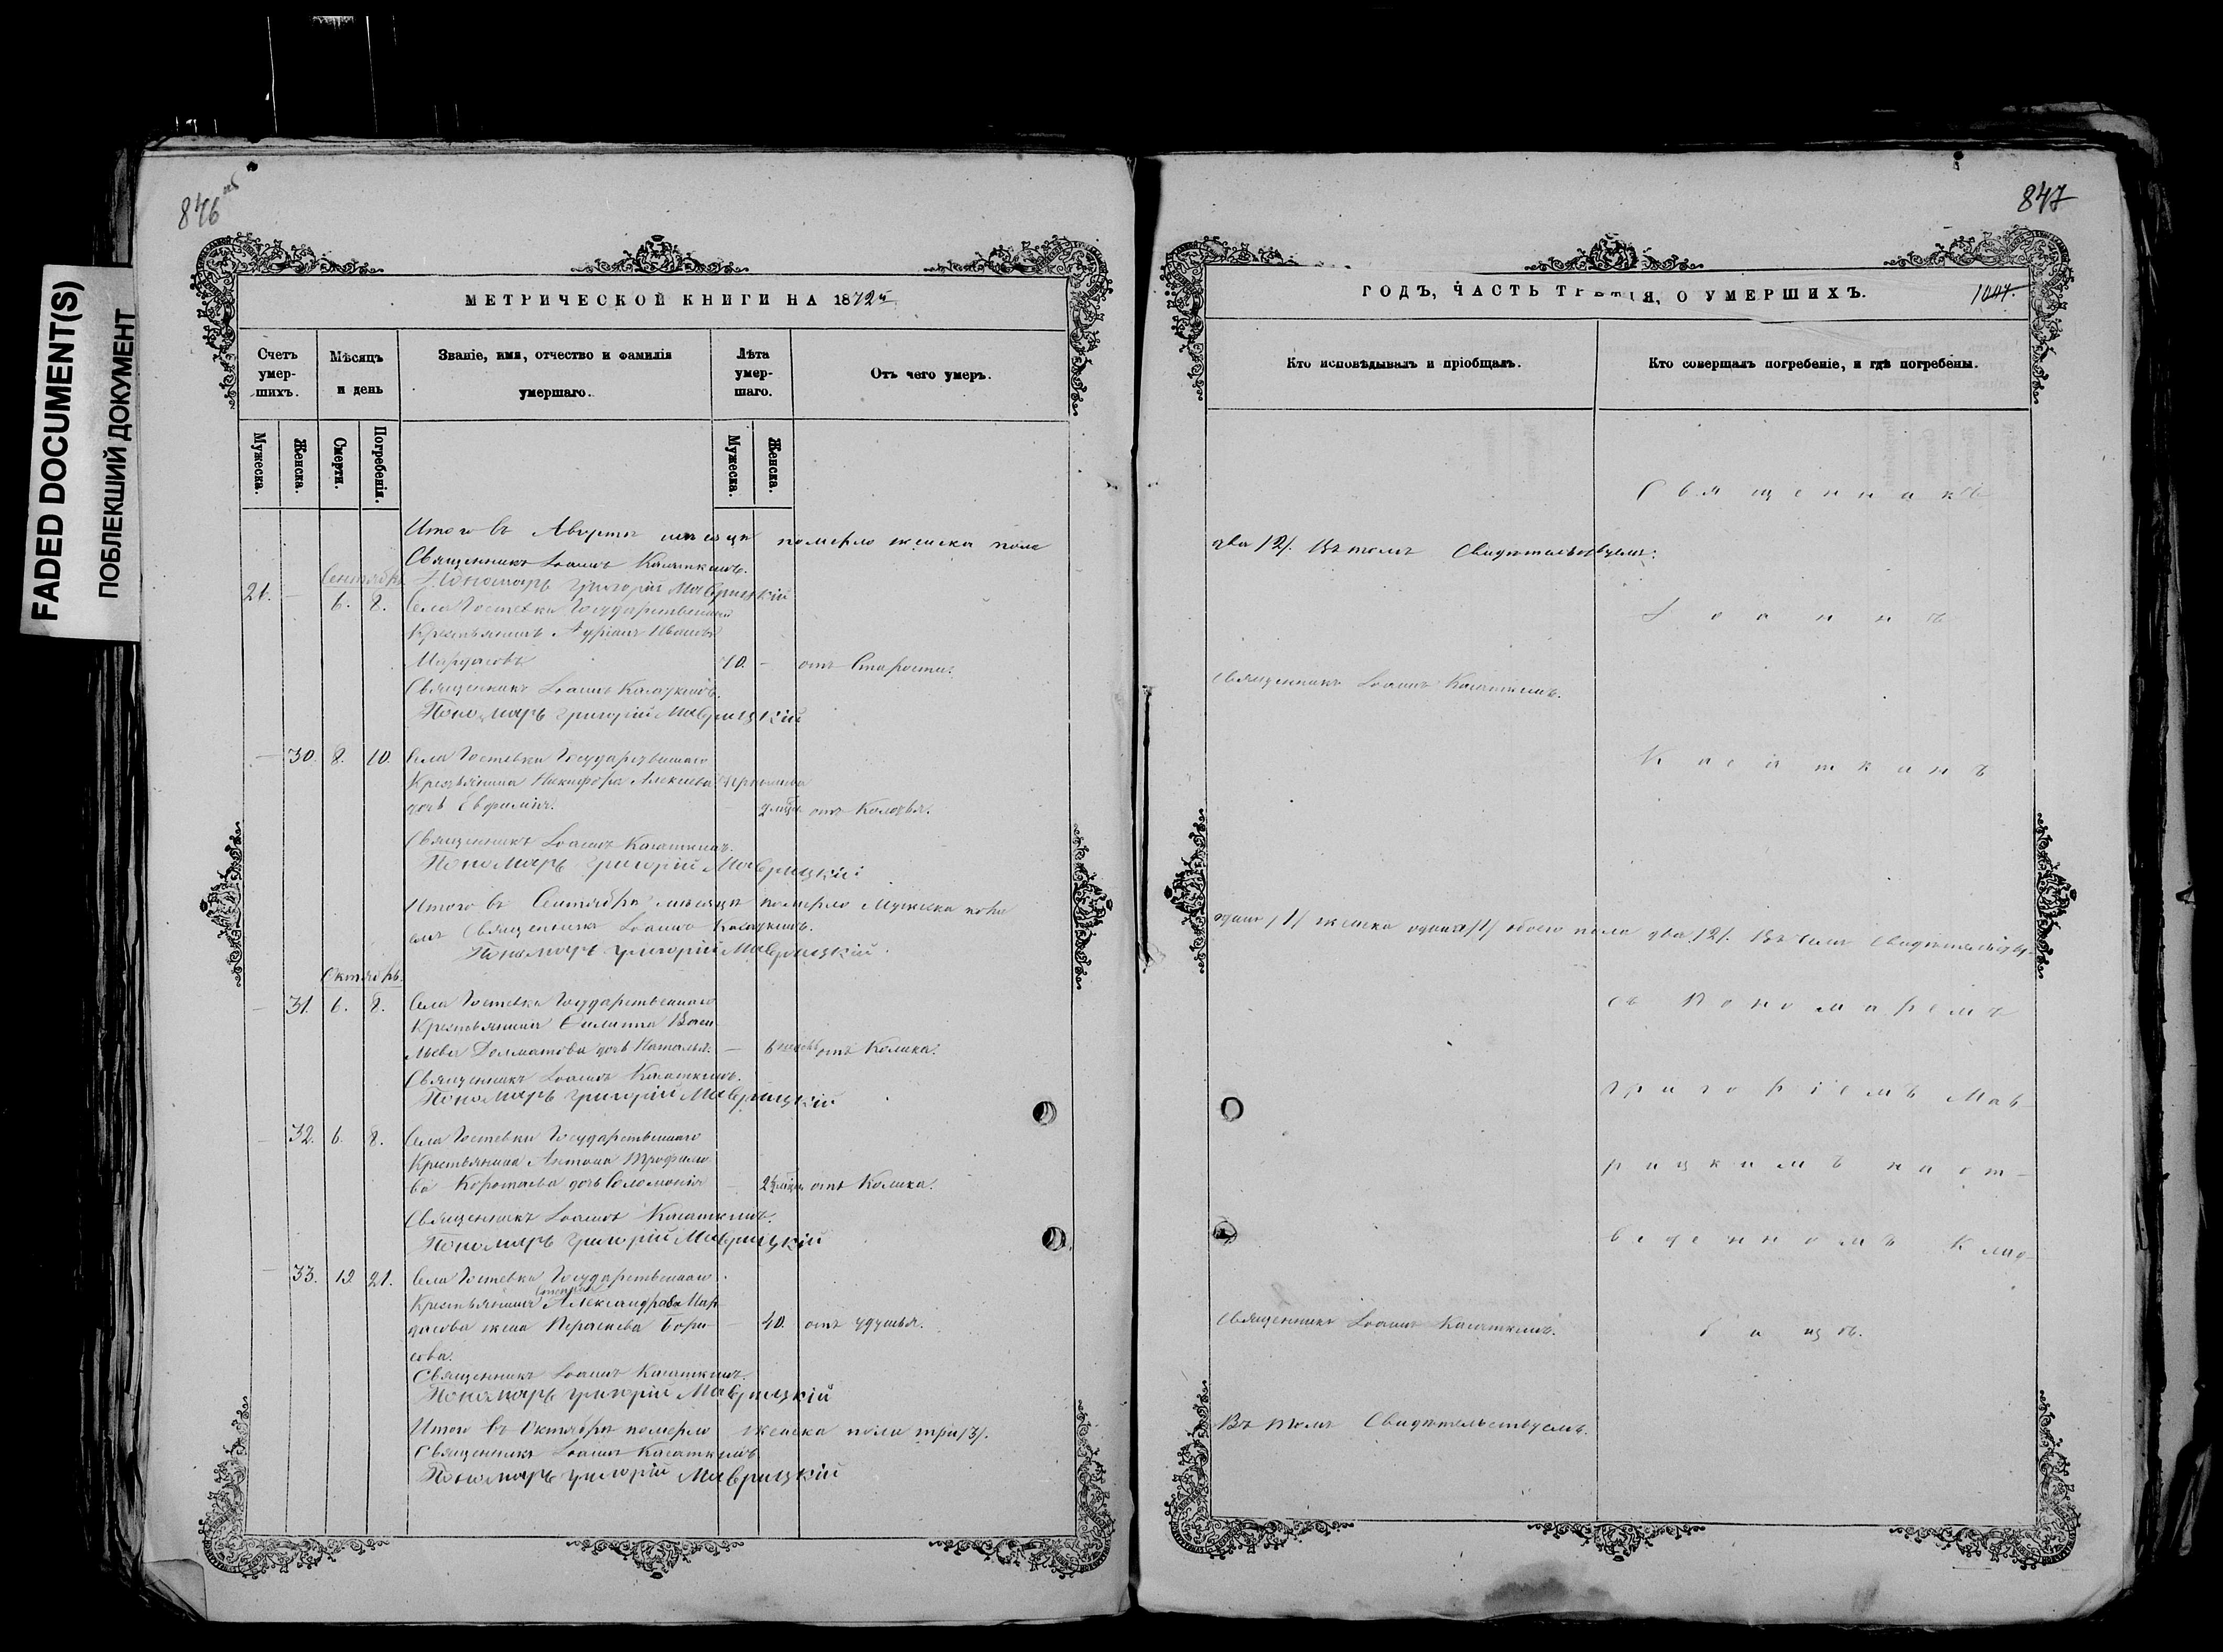 FADED DOCUMENT(S)
ПОБЛЕКШИЙ ДОКУМЕНТ
846 об
МЕТРИЧЕСКОЙ КНИГИ НА 1872й
Счетъ умер-шихъ.
Мѣсяцъ и день
Званіе, имя, отчество и фамилія умершаго.
Лѣта умер-шаго.
Отъ чего умеръ.
Мужеска.
Женска.
Смерти.
Погребенія.
Мужеска.
Женска.
Итого въ Августѣ мѣсяцѣ померло женска пола
Священникъ Іоаннъ Касаткинъ.
Сентябрь Пономарь Григорій Маврицкій
21. — 6. 8. Села Гостевки Государственный
Крестьянинъ Адріанъ Ивановъ
Мардасовъ 70. — отъ Старости.
Священникъ Іоаннъ Касаткинъ.
Пономарь Григорій Маврицкій
— 30. 8. 10. Села Гостевки Государственнаго
Крестьянина Никифора Алексѣева
дочь Евфимія. — 2 мѣс. отъ Колотья.
Священникъ Іоаннъ Касаткинъ.
Пономарь Григорій Маврицкій
Итого въ Сентябрѣ мѣсяцѣ померло Мужеска пола
Священникъ Іоаннъ Касаткинъ.
Пономарь Григорій Маврицкій.
Октябрь.
— 31. 6. 8. Села Гостевки Государственнаго
Крестьянина Филиппа Васи
льева Долматова дочь Наталья. — 6 отъ Колика.
Священникъ Іоаннъ Касаткинъ.
Пономарь Григорій Маврицкій
— 32. 6. 8. Села Гостевки Государственнаго
Крестьянина Антона Трофимо
ва Коротаева дочь Соломонія — отъ Колика.
Священникъ Іоаннъ Касаткинъ.
Пономарь Григорій Маврицкій
— 33. 19. 21. Села Гостевки Государственнаго
Крестьянина Александрова Мар
дасова жена Параскева Бори — 40. отъ удушья.
сова.
Священникъ Іоаннъ Касаткинъ.
Пономарь Григорій Маврицкій
Итого въ Октябрѣ померло женска пола три /3/.
Священникъ Іоаннъ Касаткинъ
Пономарь Григорій Маврицкій
847
ГОДЪ, ЧАСТЬ ТРЕТІЯ, О УМЕРШИХЪ.
1007.
Кто исповѣдывалъ и пріобщалъ.
Кто совершалъ погребеніе, и гдѣ погребены.
Священникъ
два /2/. Въ томъ Свидѣтельствуемъ:
Іоаннъ
Священникъ Іоаннъ Касаткинъ.
Касаткинъ
одинъ /1/ женска одна /1/ обоего пола два /2/. Въ семъ Свидѣтельству-
съ Пономаремъ
Григоріемъ Мав-
рицкимъ на от-
веденномъ Клад-
Священникъ Іоаннъ Касаткинъ.
бищѣ.
Въ томъ Свидѣтельствуемъ.